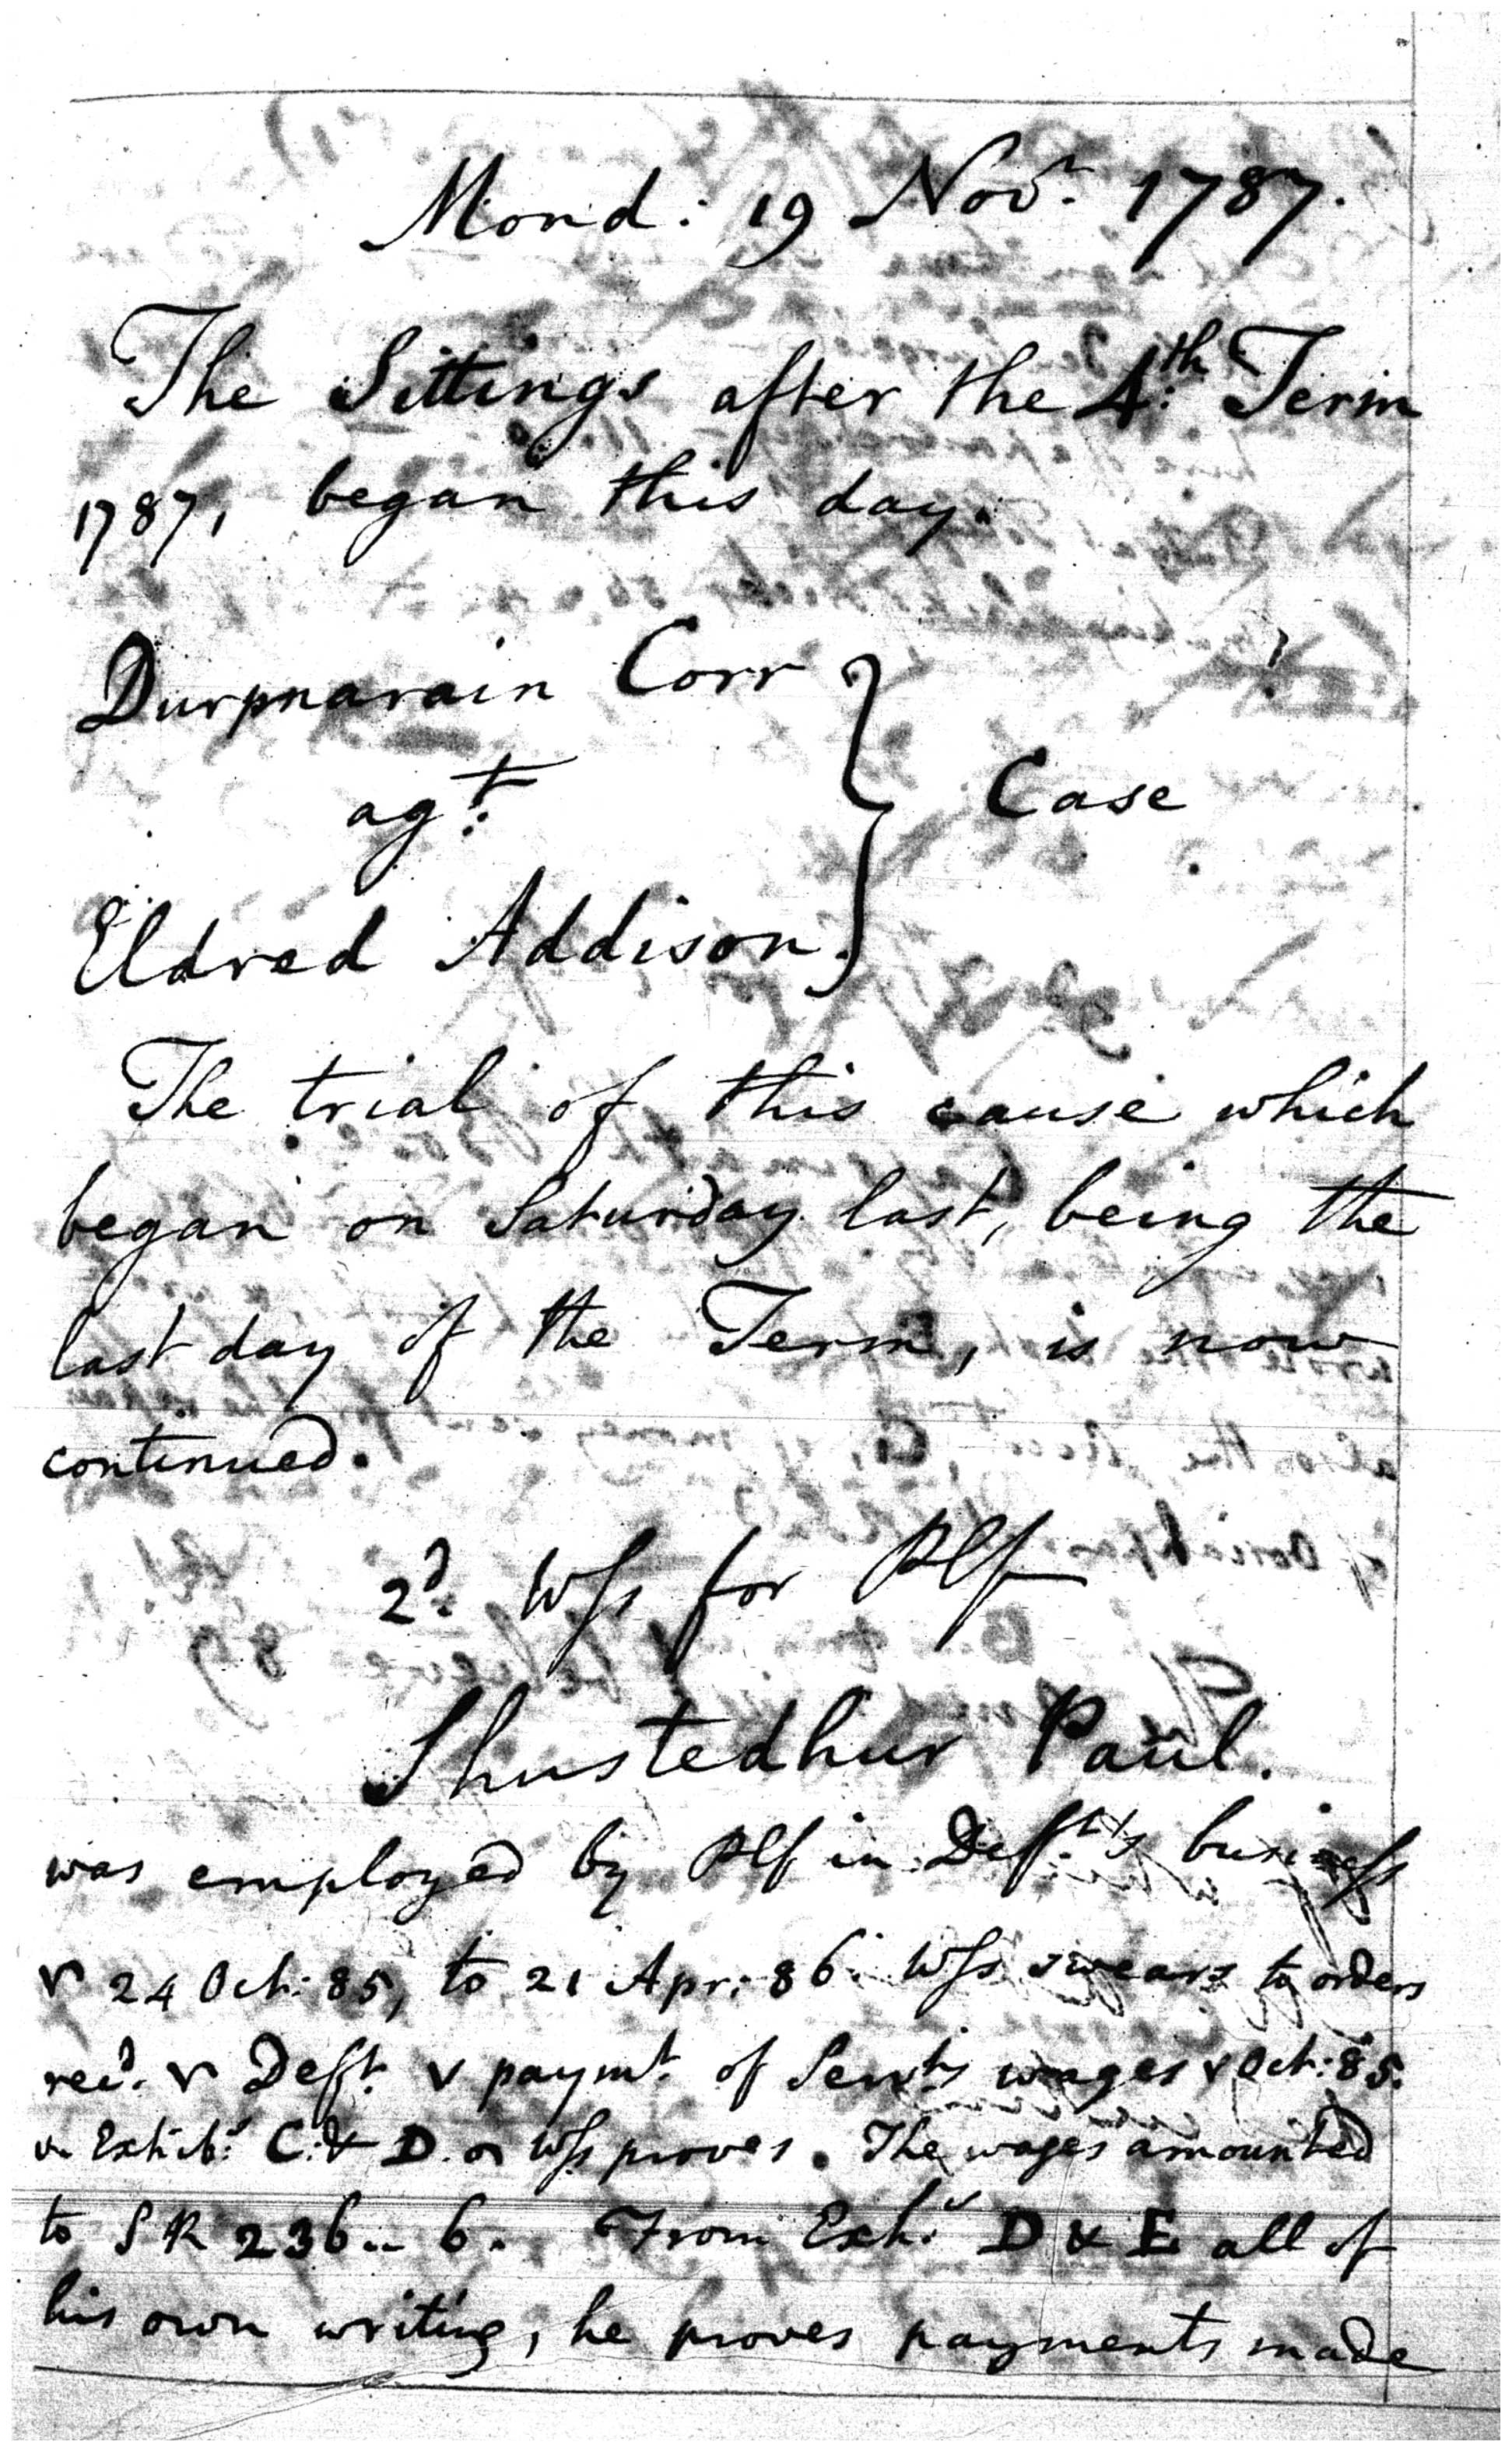 Mond: 19 Novr. 1787.
The Sittings after the 4th: Term
1787, began this day.
Durpnarain Corr
agt:
Case
Eldred Addison.
The trial of this cause which
began on Saturday last, being the
last day of the Term, is now
continued.
2d. Wss for Plf
Shustedhur Paul.
was employed by Plf in Deft's business
24 Oct: 85, to 21 Apr: 86. Wss swears to orders
recd. Deft. paymt. of Servts wages Oct: 85.
Exhib: C: & D. Wss proves. The wages amounted
to SR 236.. 6. From Exh: D & E all of
his own writing, he proves payments made